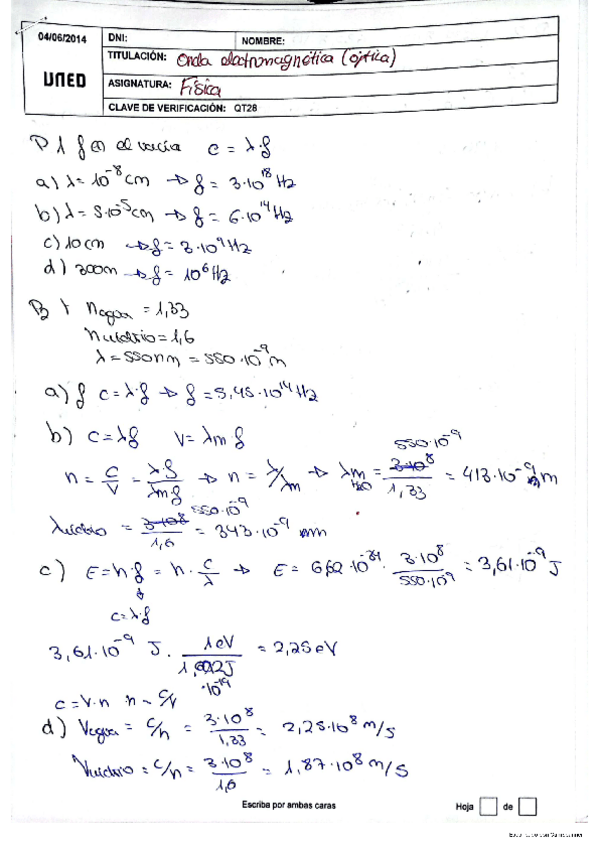 04/06/2014
UNED
DNI: NOMBRE:
TITULACIÓN: Onda electromagnética (óptica)
ASIGNATURA: Física
CLAVE DE VERIFICACIÓN: QT28
f en el vacío c = λ·f
a) λ = 10⁻⁸ cm → f = 3·10¹⁸ Hz
b) λ = 5·10⁻⁵ cm → f = 6·10¹⁴ Hz
c) 10 cm → f = 3·10⁹ Hz
d) 300m → f = 10⁶ Hz
n agua = 1,33
n vidrio = 1,6
λ = 550 nm = 550·10⁻⁹ m
a) f c = λ·f → f = 5,45·10¹⁴ Hz
b) c = λf V = λm f
n = C/V = λ·f/λm f → n = λ/λm → λm H₂O = 550·10⁻⁹/1,33 = 413·10⁻⁹ m
λvidrio = 550·10⁻⁹/1,6 = 343·10⁻⁹
c) E = h·f = h·c/λ → E = 6,62·10⁻³⁴ · 3·10⁸/550·10⁻⁹ = 3,61·10⁻⁹ J
c = λ·f
3,61·10⁻⁹ J · 1eV/1,602J ·10⁻¹⁹ = 2,25 eV
c = V·n n = c/v
d) Vagua = c/n = 3·10⁸/1,33 = 2,25·10⁸ m/s
Vvidrio = c/n = 3·10⁸/1,6 = 1,87·10⁸ m/s
Escriba por ambas caras
Hoja de